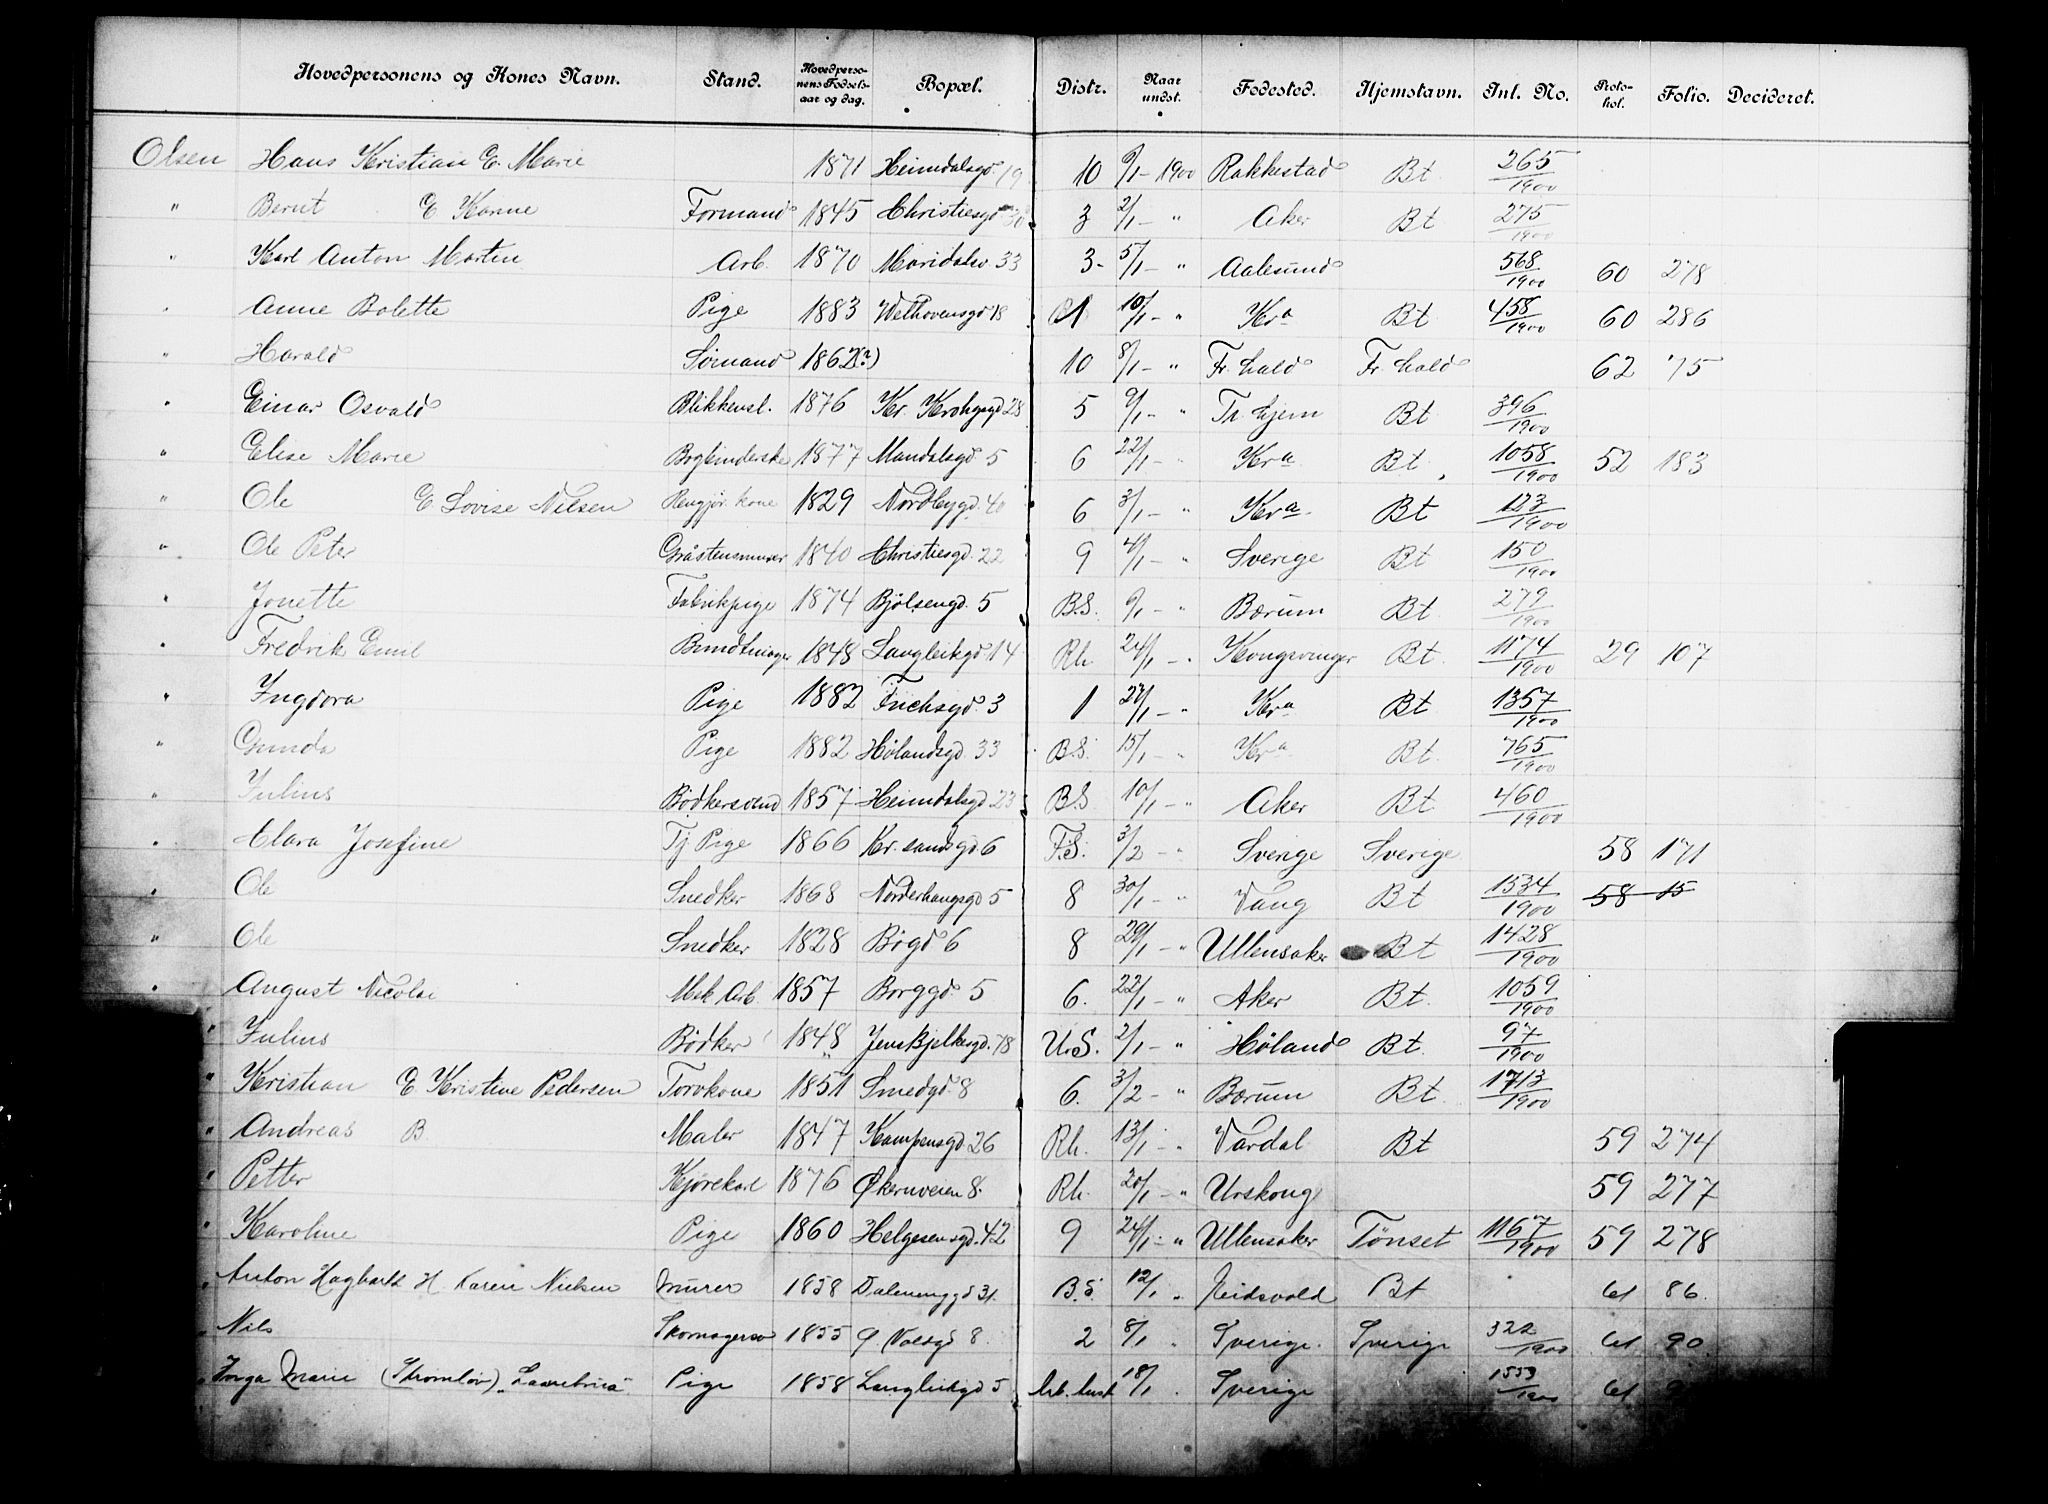 Hovedpersonens og Kones Navn. Stand. Hovedperso-nens Fødsels-aar og dag. Bopæl. Distr. Naar undst. Fødested. Hjemstavn. Inl. No. Protokol. Folio. Decideret.
Olsen Hans Kristian E. Marie 1871 Heimdalsgd. 19 10 9/1 - 1900 Rakkestad Bt. 265/1900
" Bernt E Karine Formand 1845 Christiesgd 3 2/1 - " Aker Bt 275/1900
" Karl Anton Martin Arb. 1870 Maridalsv. 33 3- 5/1 - " Aalesund 568/1900 60 278
" Anne Bolette Pige 1883 Welhavensgd 18 1 10/1 - " Kra Bt 458/1900 60 286
" Harald Sømand 1862(?) 10 8/1 - " Fr.hald Fr.hald 62 75
" Einar Osvald Blikkensl. 1876 Kr. Krohgsgd 28 5 9/1 - " Tr.hjem Bt 396/1900
" Elise Marie Bogbinderske 1877 Mandalsgd 5 6 22/1 - " Kra Bt. 1058/1900 52 183
" Ole E. Lovise Nilsen Rengjør. kone 1829 Nordbygd. 40 6 3/1 - " Kra Bt 123/1900
" Ole Peter Gråstensmurer 1840 Christiesgd. 22 9 4/1 - " Sverige Bt 150/1900
" Jonette Fabrikpige 1874 Bjølsengd. 5 B.S. 9/1 - " Bærum Bt 279/1900
" Fredrik Emil Bundtmager 1848 Langleikgd. 14 Rh. 24/1 - " Kongsvinger Bt. 1174/1900 29 107
" Ingdora Pige 1882 Frichsgd. 3 1 27/1 - " Kra Bt 1357/1900
" Gunda Pige 1882 Hølandsgd 33 B.S. 15/1 - " Kra Bt. 765/1900
" Julius Bødkersvend 1857 Heimdalsgd 23 B.S 10/1 - " Aker Bt 460/1900
" Clara Josefine Tj. Pige 1866 Kr.sandsgd. 6 F.S. 3/2 - " Sverige Sverige 58 171
" Ole Snedker 1868 Norderhaugsgd 5 8 30/1 - " Vang Bt 1534/1900 58 15
" Ole Snedker 1828 Bøgd 6 8 29/1 - " Ullensaker Bt 1428/1900
" August Nicolai Mek Arb. 1857 Borggd. 5 6. 22/1 - " Aker Bt. 1059/1900
" Julius Bødker 1848 Jens Bjelkesgd. 78 U.S. 2/1 - " Høland Bt. 97/1900
" Kristian E Kristine Pedersen Torvkone 1851 Smedgd. 8 6. 3/2 - " Bærum Bt. 1713/1900
" Andreas B. Maler 1847 Kampensgd 26 Rh. 13/1 - " Vardal Bt 59 274
" Petter Kjørekarl 1876 Økernveien 8. Rh. 20/1 - " Urskoug 59 277
" Karoline Pige 1860 Helgesensgd. 42 9 24/1 - " Ullensaker Tønset 1167/1900 59 278
" Anton Hagbarth H Karen Nielsen Murer 1858 Dalenenggd 31. B.S. 12/1 " Eidsvold Bt 61 86
" Nils Skomagersv 1855 Ø. Voldgd 8. 2 8/1 " Sverige. Sverige 322/1900 61 90
" Inga Marie (Stromløv) Pige 1858 Langleikgd 5 18/1 " Sverige 1553/1900 61